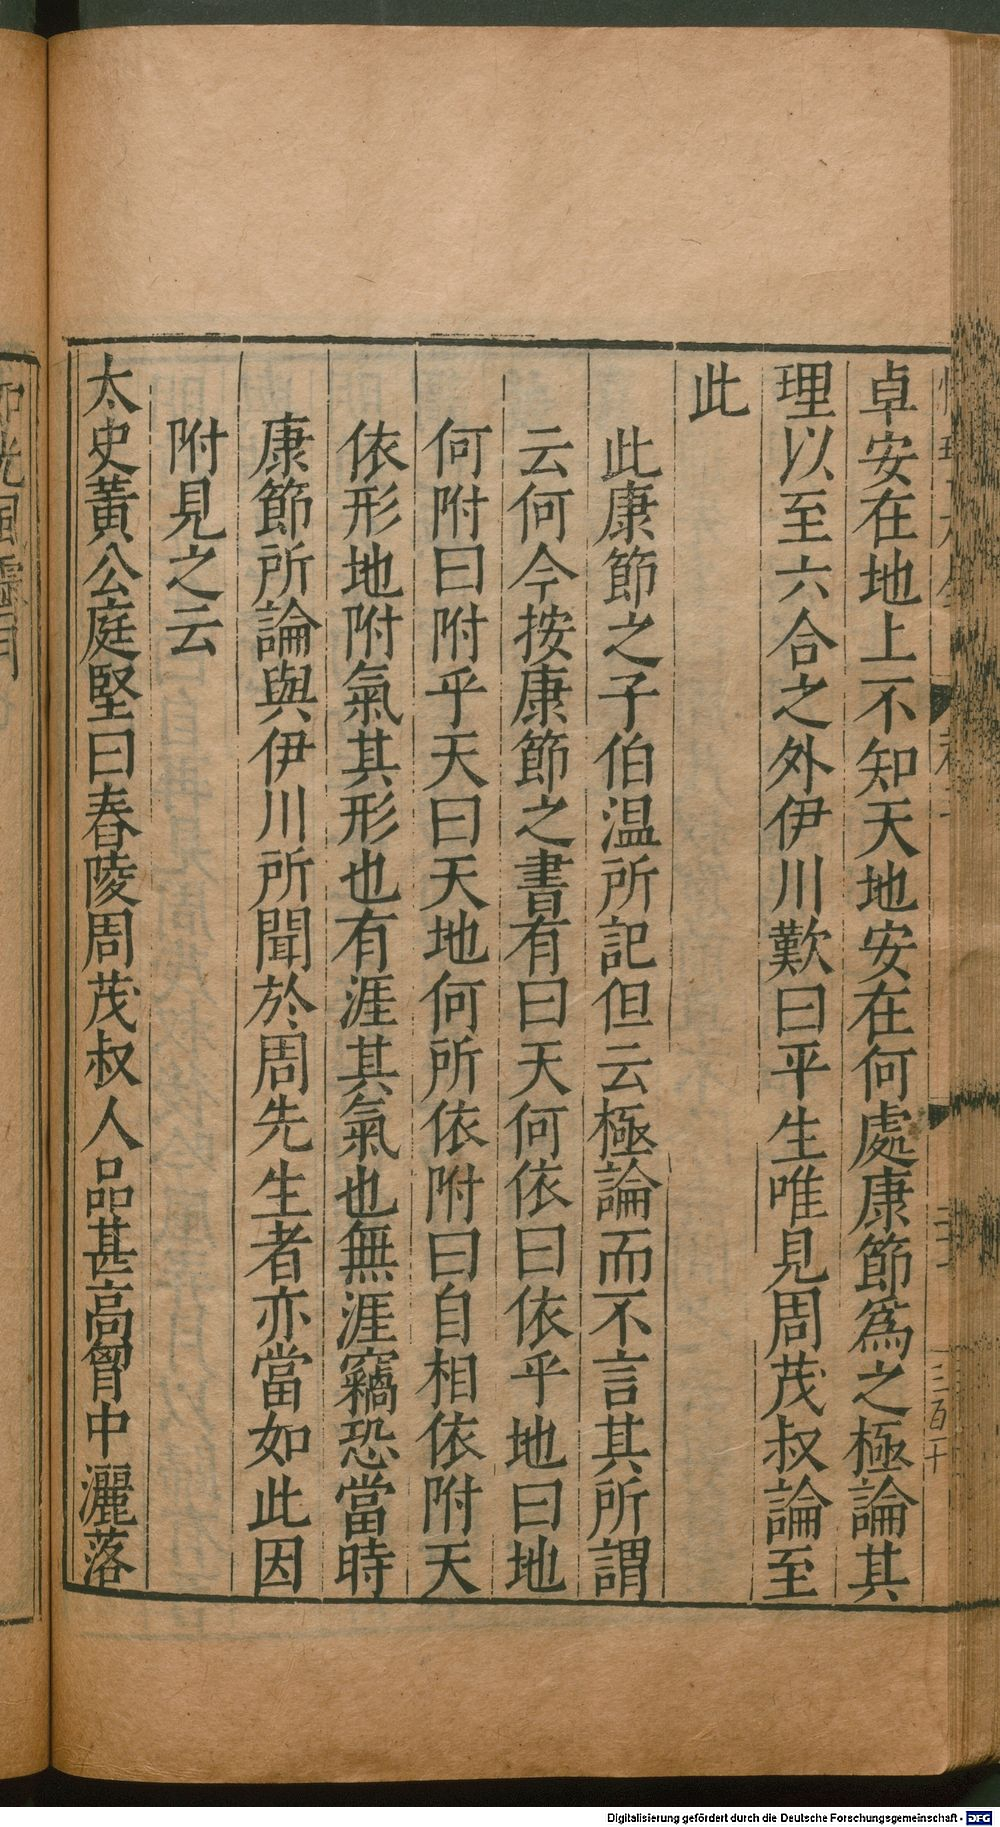 卓安在地上不知天地安在何處康節爲之極論其
理以至六合之外伊川歎曰平生唯見周茂叔論至
此
此康節之子伯温所記但云極論而不言其所謂
云何今按康節之書有曰天何依曰依乎地曰地
何附曰附乎天曰天地何所依附曰自相依附天
依形地附氣其形也有涯其氣也無涯竊恐當時
康節所論與伊川所聞於周先生者亦當如此因
附見之云
太史黃公庭堅曰舂陵周茂叔人品甚高胷中灑落
三百十
Digitalisierung gefördert durch die Deutsche Forschungsgemeinschaft - DFG